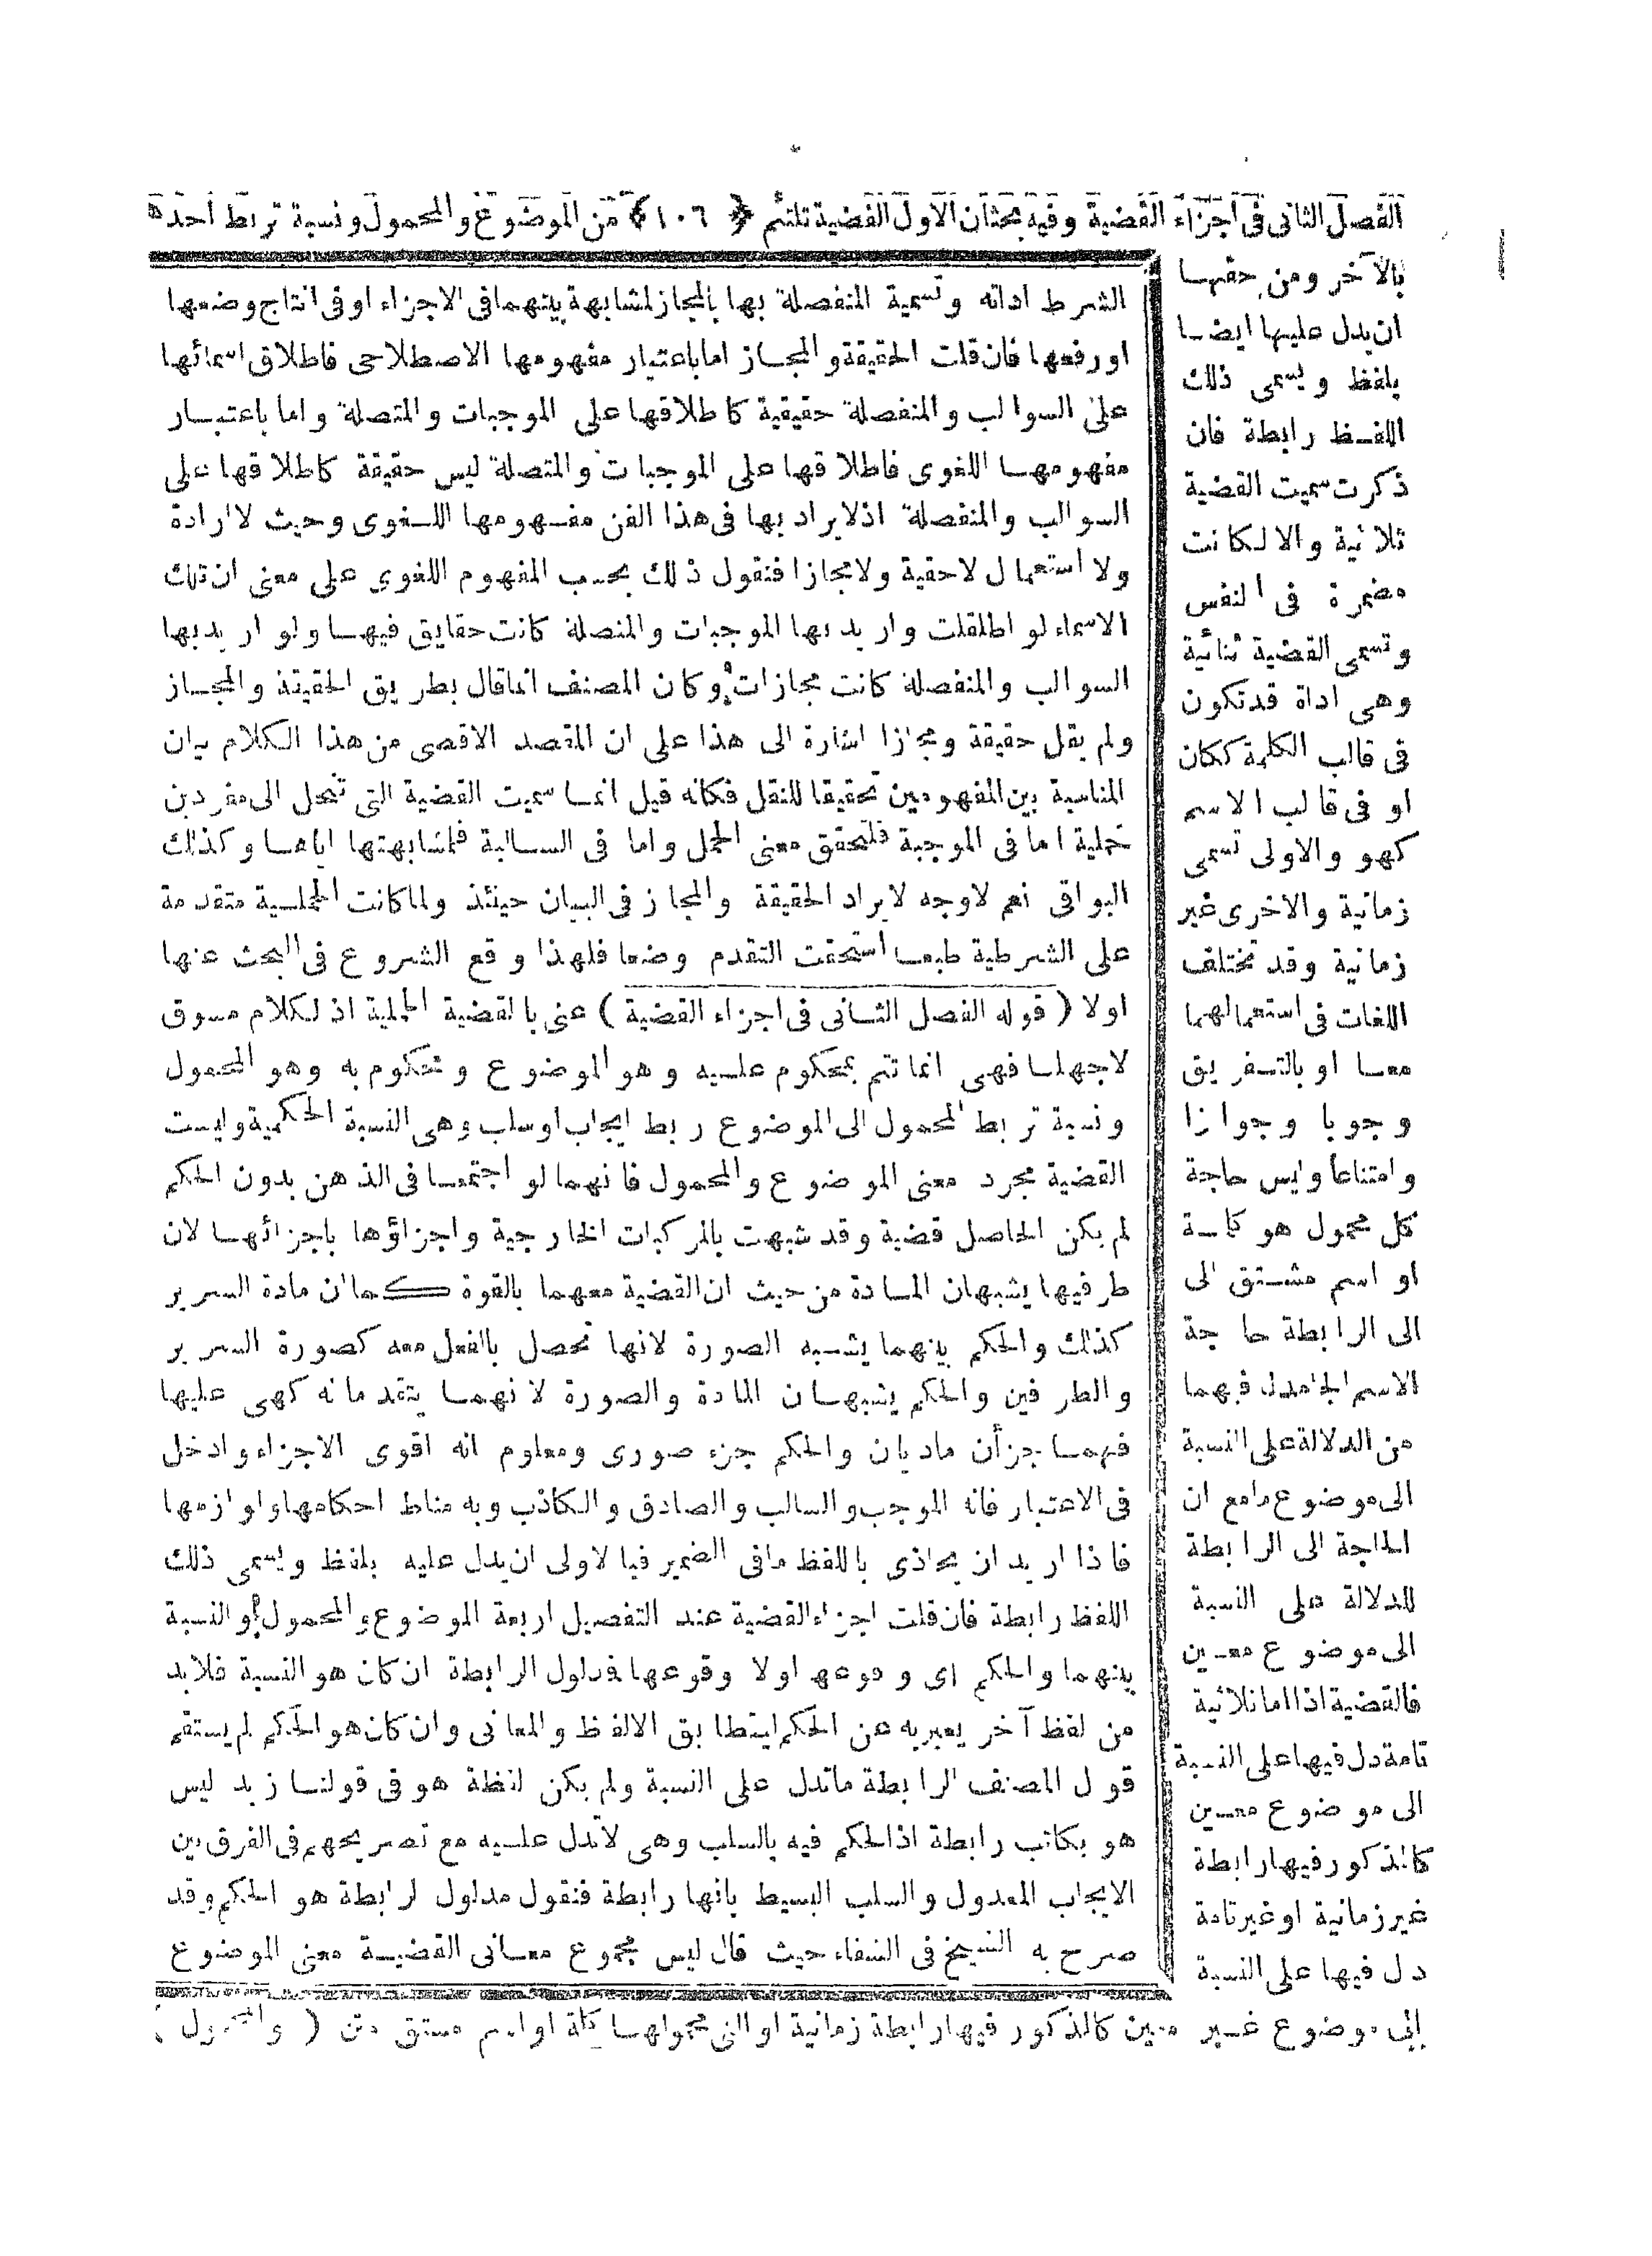 الفصل الثانى فى اجزاء القضية وفيه بحثان الاول القضية تلتئم ﴿ ١٠٦ ﴾ من الموضوع والمحمول ونسبة تربط احدهما
بالآخر ومن حقها
ان يدل عليها ايضا
بلفظ ويسمى ذلك
اللفظ رابطة فان
ذكرت سميت القضية
ثلاثية والا لكانت
مضمرة فى النفس
وتسمى القضية ثنائية
وهى اداة قد تكون
فى قالب الكلمة ككان
او فى قالب الاسم
كهو والاولى تسمى
زمانية والاخرى غير
زمانية وقد تختلف
اللغات فى استعمالهما
معا او بالتفريق
وجوبا وجوازا
وامتناعا وليس حاجة
كل محمول هو كلمة
او اسم مشتق الى
الى الرابطة حاجة
الاسم الجامد لما فيهما
من الدلالة على النسبة
الى موضوع ما مع ان
الحاجة الى الرابطة
للدلالة على النسبة
الى موضوع معين
فالقضية اذا اما ثلاثية
تامة دل فيها على النسبة
الى موضوع معين
كالمذكور فيها رابطة
غير زمانية او غير تامة
دل فيها على النسبة
الى موضوع غير معين كالمذكور فيها رابطة زمانية او التى محمولها كلة او اسم مشتق
الشرط اداته وتسمية المنفصلة بها بالمجاز لمشابهة بينهما فى الاجزاء او فى انتاج وضعها
او رفعها فان قلت الحقيقة والمجاز اما باعتبار مفهومها الاصطلاحى فاطلاق اسمائها
على السوالب والمنفصلة حقيقية كاطلاقها على الموجبات والمتصلة واما باعتبار
مفهومها اللغوى فاطلاقها على الموجبات والمتصلة ليس حقيقة كاطلاقها على
السوالب والمنفصلة اذ لا يراد بها فى هذا الفن مفهومها اللغوى وحيث لا ارادة
ولا استعمال لا حقية ولا مجازا فنقول ذلك بحسب المفهوم اللغوى على معنى ان تلك
الاسماء لو اطلقت واريد بها الموجبات والمتصلة كانت حقايق فيها ولو اريد بها
السوالب والمنفصلة كانت مجازات وكان المصنف انما قال بطريق الحقيقة والمجاز
ولم يقل حقيقة ومجازا اشارة الى هذا على ان المقصد الاقصى من هذا الكلام بيان
المناسبة بين المفهومين تحقيقا للنقل فكانه قيل انما سميت القضية التى تنحل الى مفردين
حملية اما فى الموجبة فلتحقق معنى الحمل واما فى السالبة فلمشابهتها اياها وكذلك
البواقى نعم لا وجه لايراد الحقيقة والمجاز فى البيان حينئذ ولما كانت الحملية متقدمة
على الشرطية طبعا استحقت التقدم وضعا فلهذا وقع الشروع فى البحث عنها
اولا ( قوله الفصل الثانى فى اجزاء القضية ) عنى بالقضية الحملية اذ لكلام مسوق
لاجهلا فهى انما تتم بمحكوم عليه وهو الموضوع ومحكوم به وهو المحمول
ونسبة تربط المحمول الى الموضوع ربط ايجاب او سلب وهى النسبة الحكمية وليست
القضية مجرد معنى الموضوع والمحمول فانهما لو اجتمعا فى الذهن بدون الحكم
لم يكن الحاصل قضية وقد شبهت بالمركبات الخارجية واجزاؤها باجزائها لان
طرفيها يشبهان المادة من حيث ان القضية معهما بالقوة كما ان مادة السرير
كذلك والحكم بينهما يشبه الصورة لانها تحصل بالفعل معه كصورة السرير
والطرفين والحكم يشبهان المادة والصورة لانهما يتقدمانه كهى عليها
فهما جزأن ماديان والحكم جزء صورى ومعلوم انه اقوى الاجزاء وادخل
فى الاعتبار فانه الموجب والسالب والصادق والكاذب وبه مناط احكامها ولوازمها
فاذا اريد ان يحاذى باللفظ ما فى الضمير فبالاولى ان يدل عليه بلفظ ويسمى ذلك
اللفظ رابطة فان قلت اجزاء القضية عند التفصيل اربعة الموضوع والمحمول والنسبة
بينهما والحكم اى وقوعها اولا وقوعها فمدلول الرابطة ان كان هو النسبة فلابد
من لفظ آخر يعبر به عن الحكم ليتطابق الالفاظ والمعانى وان كان هو الحكم لم يستقم
قول المصنف الرابطة ما تدل على النسبة ولم يكن لفظة هو فى قولنا زيد ليس
هو بكاتب رابطة اذ الحكم فيه بالسلب وهى لا تدل عليه مع تصريحهم فى الفرق بين
الايجاب المعدول والسلب البسيط بانها رابطة فنقول مدلول لرابطة هو الحكم وقد
صرح به الشيخ فى الشفاء حيث قال ليس مجموع معانى القضية معنى الموضوع
( والمحمول )